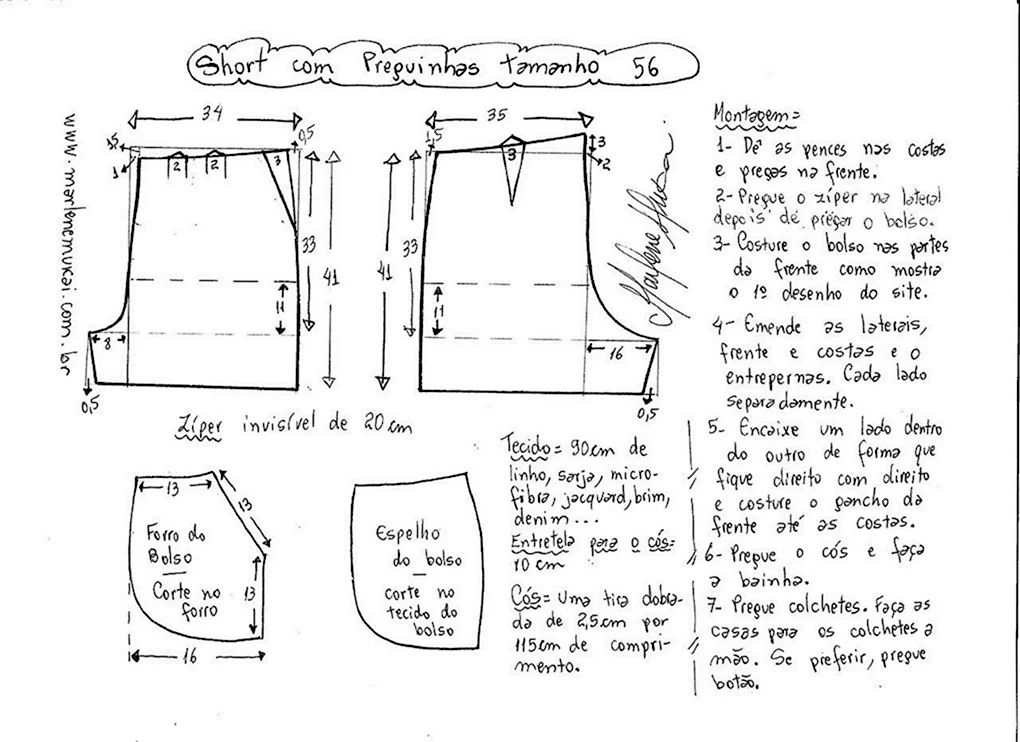 Short com Preguinhas tamanho 56
www.marlenemukai.com.br
34
1,5
0,5
1
2
2
3
33
41
11
8
0,5
35
1,5
3
3
2
41
33
11
16
0,5
Zíper invisível de 20cm
13
13
Forro do
Bolso
Corte no
forro
13
16
Espelho
do bolso
corte no
tecido do
bolso
Tecido = 90cm de
linho, sarja, micro-
fibra, jacquard, brim,
denim...
Entretela para o cós=
10 cm
Cós= Uma tira dobra-
da de 2,5cm por
115cm de compri-
mento.
Marlene Mukai
Montagem=
1- Dê as pences nas costas
e pregas na frente.
2- Pregue o zíper na lateral
depois de pregar o bolso.
3- Costure o bolso nas partes
da frente como mostra
o 1º desenho do site.
4- Emende as laterais,
frente e costas e o
entrepernas. Cada lado
separadamente.
5- Encaixe um lado dentro
do outro de forma que
fique direito com direito
e costure o gancho da
frente até as costas.
6- Pregue o cós e faça
a bainha.
7- Pregue colchetes. Faça as
casas para os colchetes a
mão. Se preferir, pregue
botão.